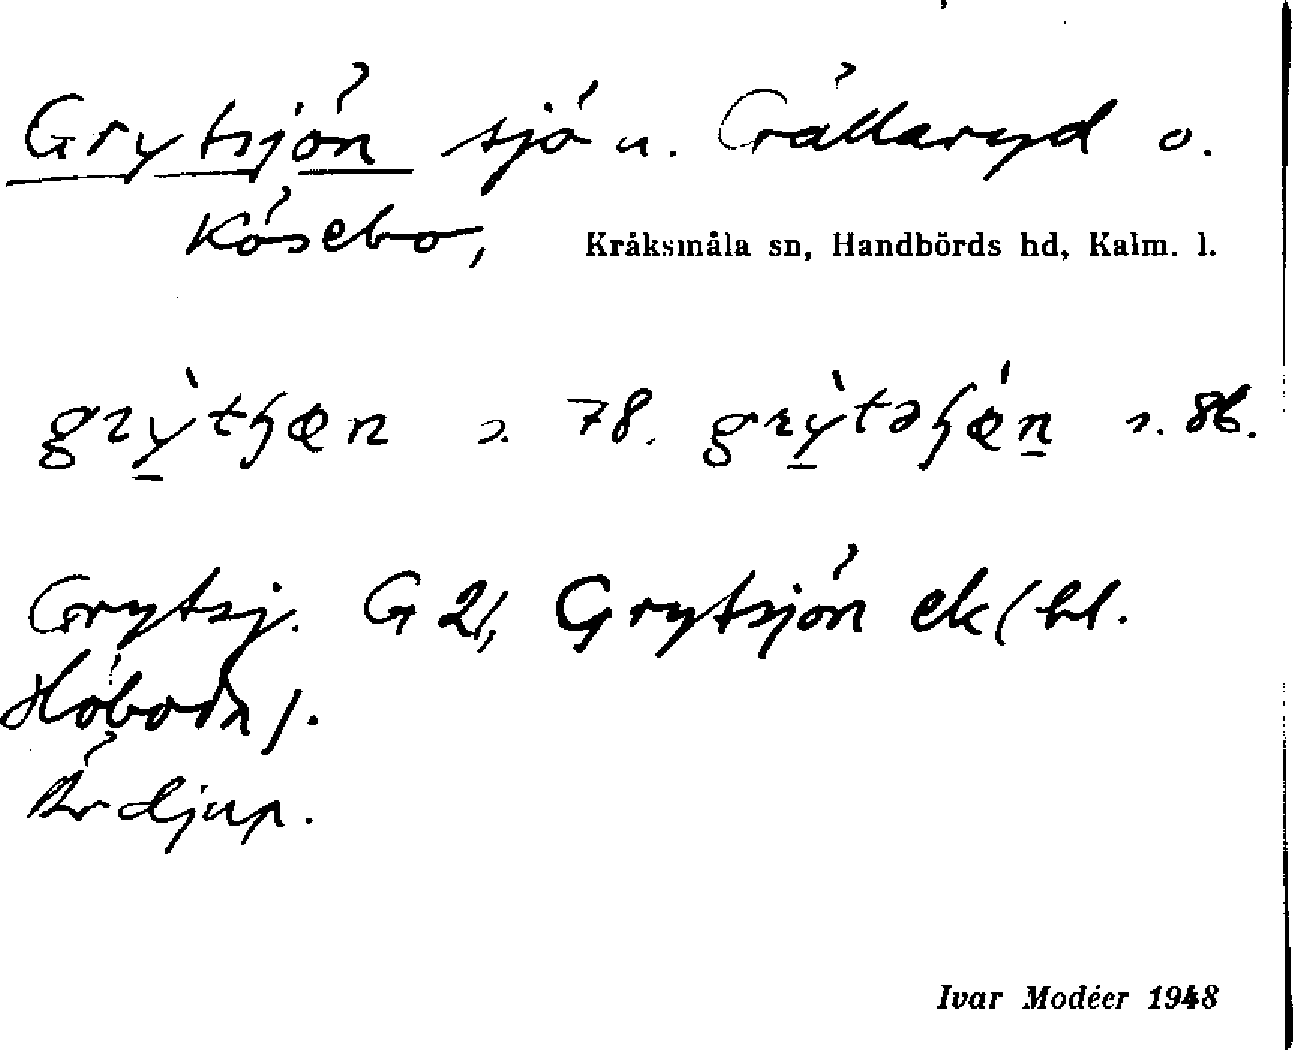 Grytsjön sjö u. Grällaryd o.
Kösebo, Kråksmåla sn, Handbörds hd, Kalm. l.
s. 78. s. 86.
Grytsj. G 21, Grytsjön ek (bl.
Högsby).
Är djup.
Ivar Modéer 1948